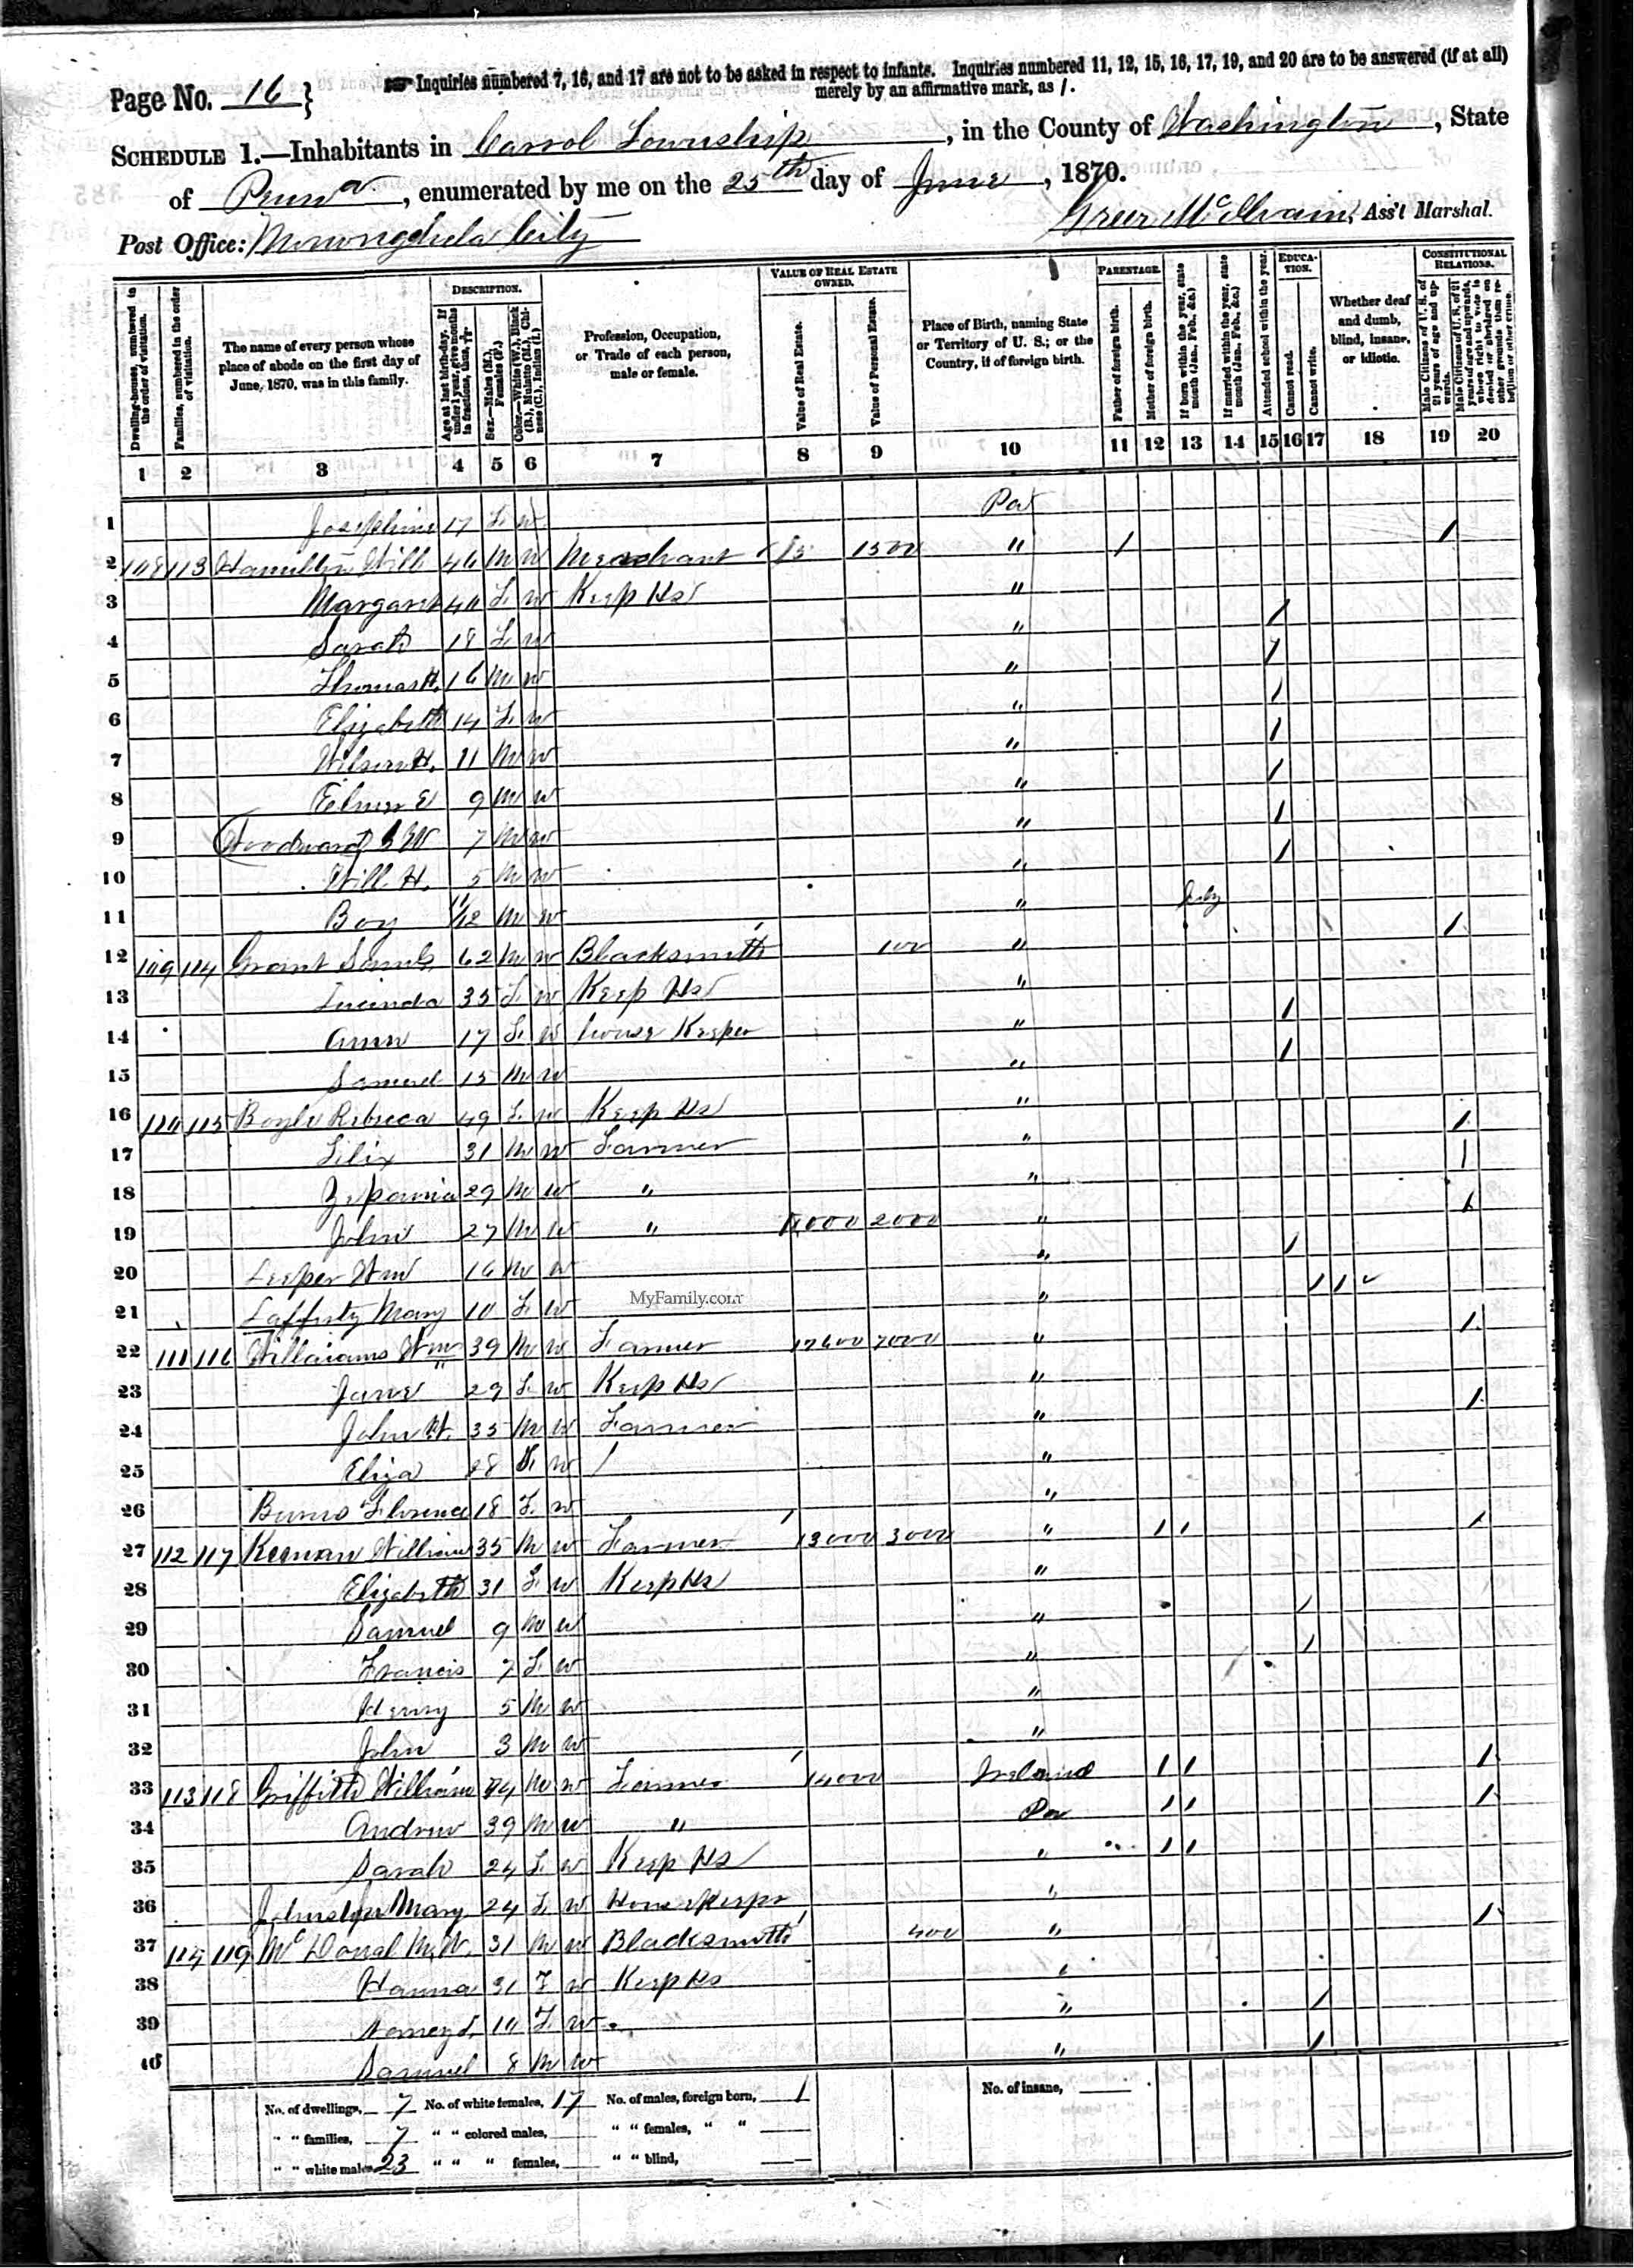 Page No. 16 }
Inquiries numbered 7, 16, and 17 are not to be asked in respect to infants. Inquiries numbered 11, 12, 15, 16, 17, 19, and 20 are to be answered (if at all)
merely by an affirmative mark, as /.
SCHEDULE 1.—Inhabitants in Carrol Township, in the County of Washington, State
of Penna, enumerated by me on the 25th day of June, 1870.
Post Office: Monongahela City Greer McIlvain, Ass't Marshal.
Dwelling-houses, numbered in the order of visitation.
Families, numbered in the order of visitation.
The name of every person whose place of abode on the first day of June, 1870, was in this family.
DESCRIPTION.
Age at last birth-day. If under 1 year, give months in fractions, thus,
Sex.—Males (M.), Females (F.)
Color.—White (W.), Black (B.), Mulatto (M.), Chinese (C.), Indian (I.)
Profession, Occupation, or Trade of each person, male or female.
VALUE OF REAL ESTATE OWNED.
Value of Real Estate.
Value of Personal Estate.
Place of Birth, naming State or Territory of U. S.; or the Country, if of foreign birth.
PARENTAGE.
Father of foreign birth.
Mother of foreign birth.
If born within the year, state month (Jan. Feb., &c.)
If married within the year, state month (Jan. Feb., &c.)
Attended school within the year.
EDUCATION.
Cannot read.
Cannot write.
Whether deaf and dumb, blind, insane, or idiotic.
CONSTITUTIONAL RELATIONS.
Male Citizens of U. S. of 21 years of age and upwards.
Male Citizens of U. S. of 21 years of age and upwards, where right to vote is denied or abridged on other grounds than rebellion or other crime.
1 2 3 4 5 6 7 8 9 10 11 12 13 14 15 16 17 18 19 20
1 Josephine 17 F W Pa
2 108 113 Hamilton Will 46 M W Merchant 1500 " / /
3 Margaret 40 F W Keep Hs "
4 Sarah 18 F W " /
5 Thomas H. 16 M W " /
6 Elizabeth 14 F W " /
7 Wilson H. 11 M W " /
8 Elmer E 9 M W " /
9 Woodward G W 7 M W " /
10 Will H. 5 M W " /
11 Boy 11/12 M W " July
12 109 114 Grant Saml 62 M W Blacksmith 100 " /
13 Lucinda 35 F W Keep Hs "
14 Ann 17 F W house Keeper " /
15 Samuel 15 M W " /
16 110 115 Boyle Rebecca 49 F W Keep Hs "
17 Felix 31 M W Farmer " /
18 Zepania 29 M W " " /
19 John 27 M W " 2000 " /
20 Leeper Wm 16 M W " /
21 Lafferty Mary 10 F W " / /
MyFamily.com
22 111 116 Willaiams Wm 39 M W Farmer 17600 7000 " /
23 Jane 29 F W Keep Hs "
24 John W. 35 M W Farmer " /
25 Eliza 28 F W / "
26 Burns Florence 18 F W "
27 112 117 Keenan William 35 M W Farmer 13000 3000 " / / /
28 Elizabeth 31 F W Keep Hs "
29 Samuel 9 M W " /
30 Francis 7 F W " /
31 Henry 5 M W "
32 John 3 M W "
33 113 118 Griffith William 74 M W Farmer 14000 Ireland / / /
34 Andrew 39 M W " Pa / / /
35 Sarah 24 F W Keep Hs " / /
36 Johnston Mary 24 F W House Keepr "
37 114 119 McDonal M. W. 31 M W Blacksmith 400 " /
38 Hanna 31 F W Keep Hs "
39 Nancy J. 10 F W " /
40 Samuel 8 M W " /
No. of dwellings, 7 No. of white females, 17 No. of males, foreign born, 1 No. of insane,
" " families, 7 " " colored males, " " females, " "
" " white males 23 " " " females, " " blind,